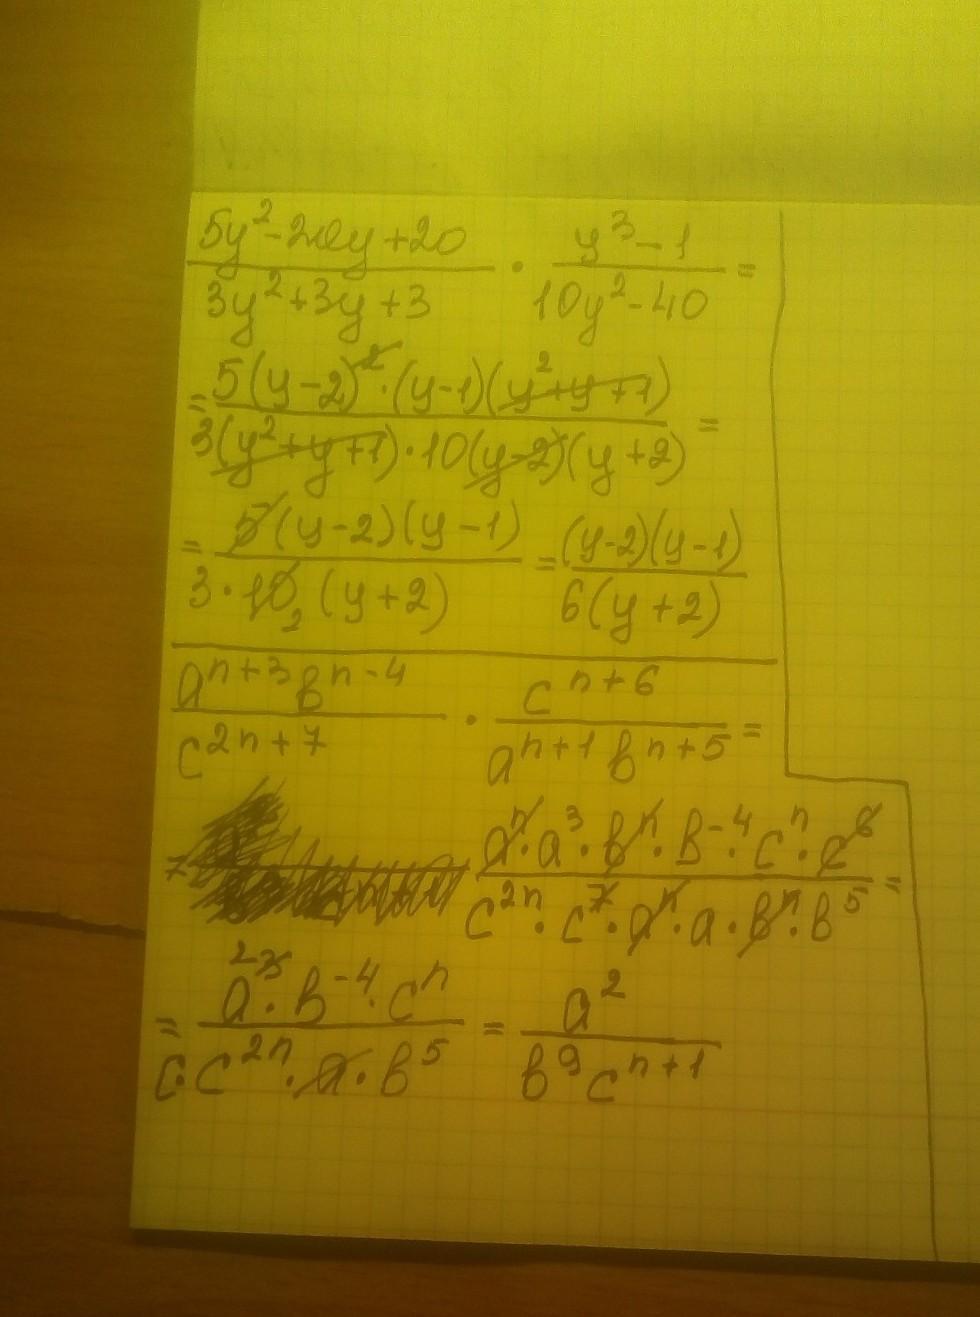 (5y²-20y+20)/(3y²+3y+3) · (y³-1)/(10y²-40) =
= (5(y-2)²·(y-1)(y²+y+1))/(3(y²+y+1)·10(y-2)(y+2)) =
= (5(y-2)(y-1))/(3·10₂(y+2)) = ((y-2)(y-1))/(6(y+2))
(aⁿ⁺³bⁿ⁻⁴)/(c²ⁿ⁺⁷) · (cⁿ⁺⁶)/(aⁿ⁺¹bⁿ⁺⁵) =
(aⁿ·a³·bⁿ·b⁻⁴·cⁿ·c⁶)/(c²ⁿ·c⁷·aⁿ·a·bⁿ·b⁵) =
= (a²·b⁻⁴·cⁿ)/(c·c²ⁿ·a·b⁵) = (a²)/(b⁹cⁿ⁺¹)